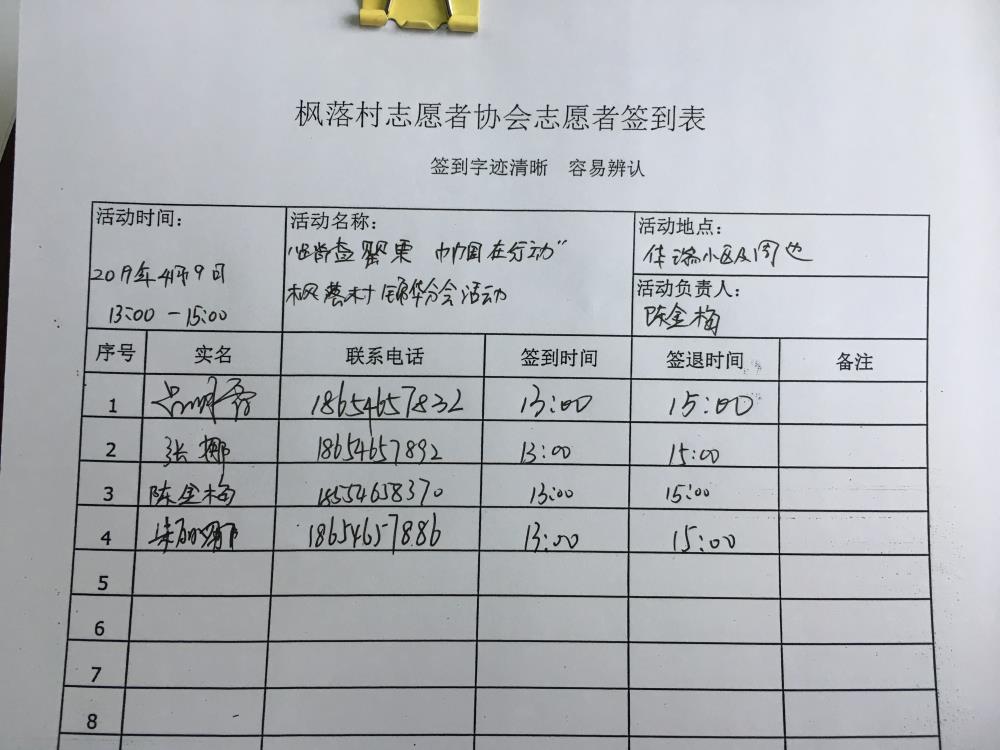 枫落村志愿者协会志愿者签到表
签到字迹清晰 容易辨认
活动时间:
2019年4月9日
13:00 - 15:00
活动名称:
罂粟 巾帼在行动”
枫落村 分会活动
活动地点:
华瑞小区及周边
活动负责人:
陈金梅
序号 实名 联系电话 签到时间 签退时间 备注
1 18654657832 13:00 15:00
2 张娜 18654657892 13:00 15:00
3 陈金梅 18554658370 13:00 15:00
4 18654657886 13:00 15:00
5
6
7
8